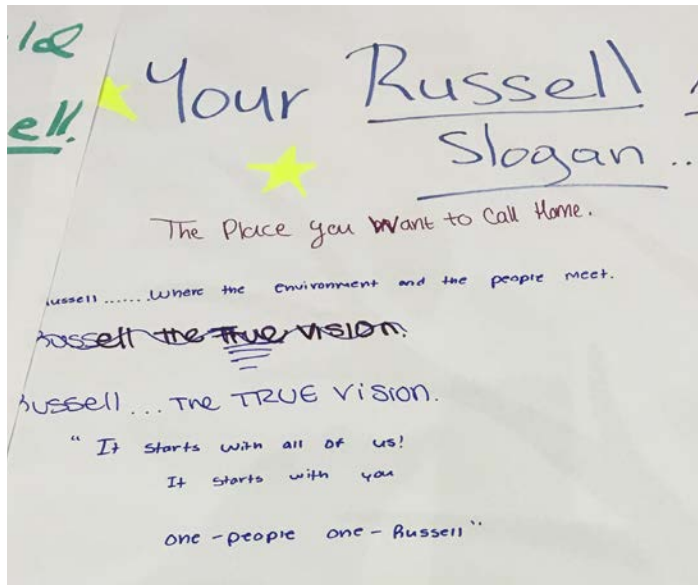 Your Russell
Slogan..
The Place you Want to Call Home.
ussell.......Where the environment and the people meet.
Russell the True Vision.
Russell... The TRUE Vision.
"It starts with all of us!
It starts with you
one-people one-Russell"
ell!